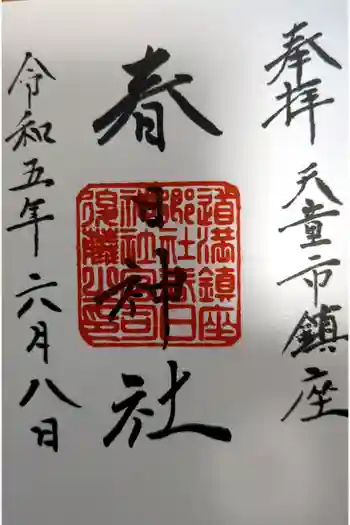 奉拝 天童市鎮座
春日神社
道満鎮座
郷社春日
神社宮司
後藤小印
令和五年六月八日